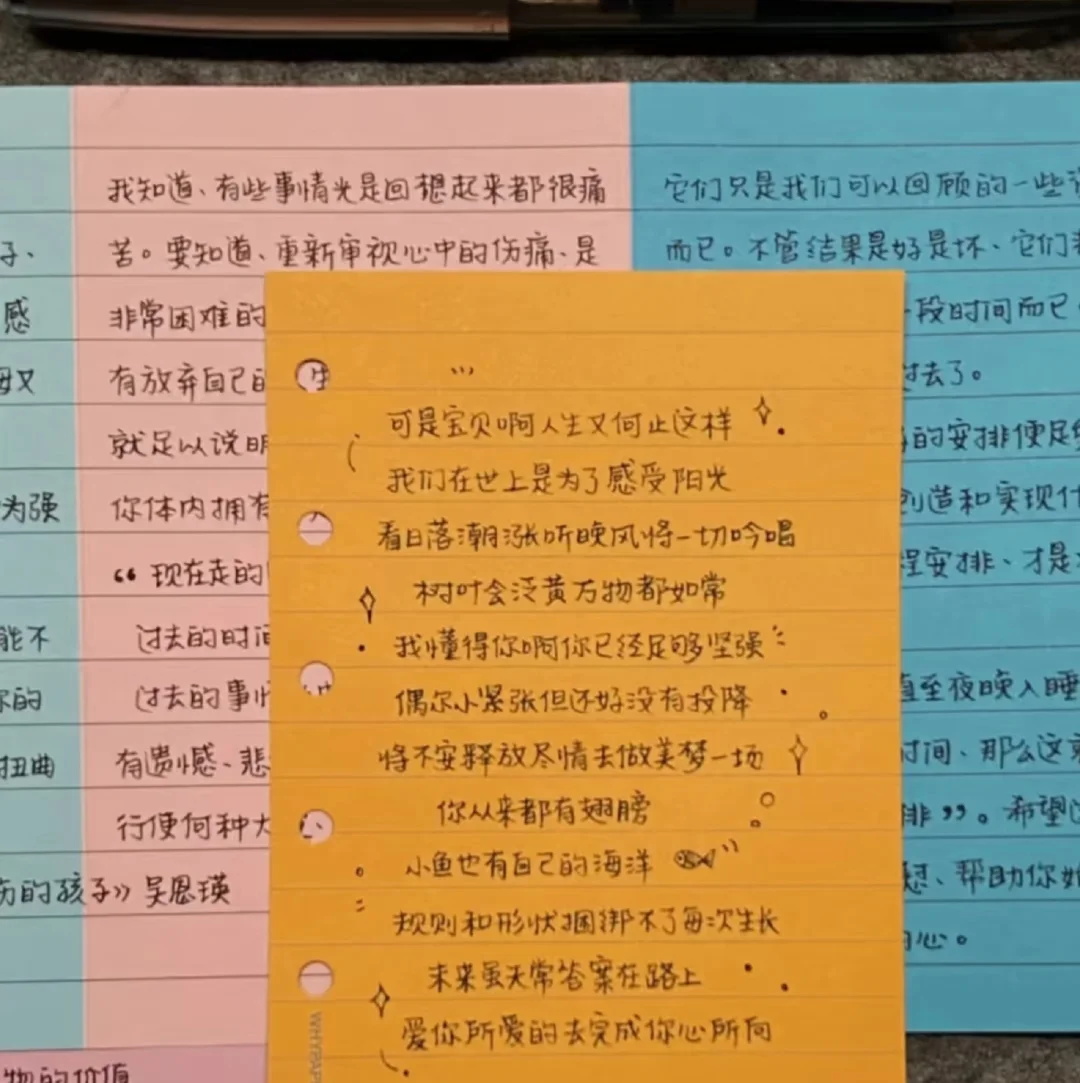 子、
感
母又
为强
能不
你的
扭曲
伤的孩子》吴恩瑛
物的价值
我知道、有些事情光是回想起来都很痛
苦。要知道、重新审视心中的伤痛、是
非常困难的
有放弃自己的
就足以说明
你体内拥有
“现在走的
过去的时间
过去的事情
有遗憾、悲
行使何种大
可是宝贝啊人生又何止这样
我们在世上是为了感受阳光
看日落潮涨听晚风将一切吟唱
树叶会泛黄万物都如常
我懂得你啊你已经足够坚强
偶尔小紧张但还好没有投降
将不安释放尽情去做美梦一场
你从来都有翅膀
小鱼也有自己的海洋
规则和形状捆绑不了每次生长
未来虽无常答案在路上
爱你所爱的去完成你心所向
WHYPAP
它们只是我们可以回顾的一些
而已。不管结果是好是坏、它们
一段时间而已
过去了。
的安排便足
创造和实现
程安排、才是
直至夜晚入睡
时间、那么这
排”。希望
想、帮助你
内心。